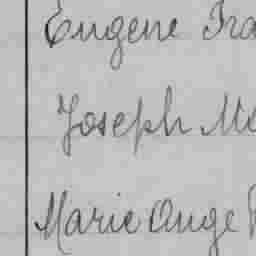 Eugene Fra
Joseph Me
Marie Ange